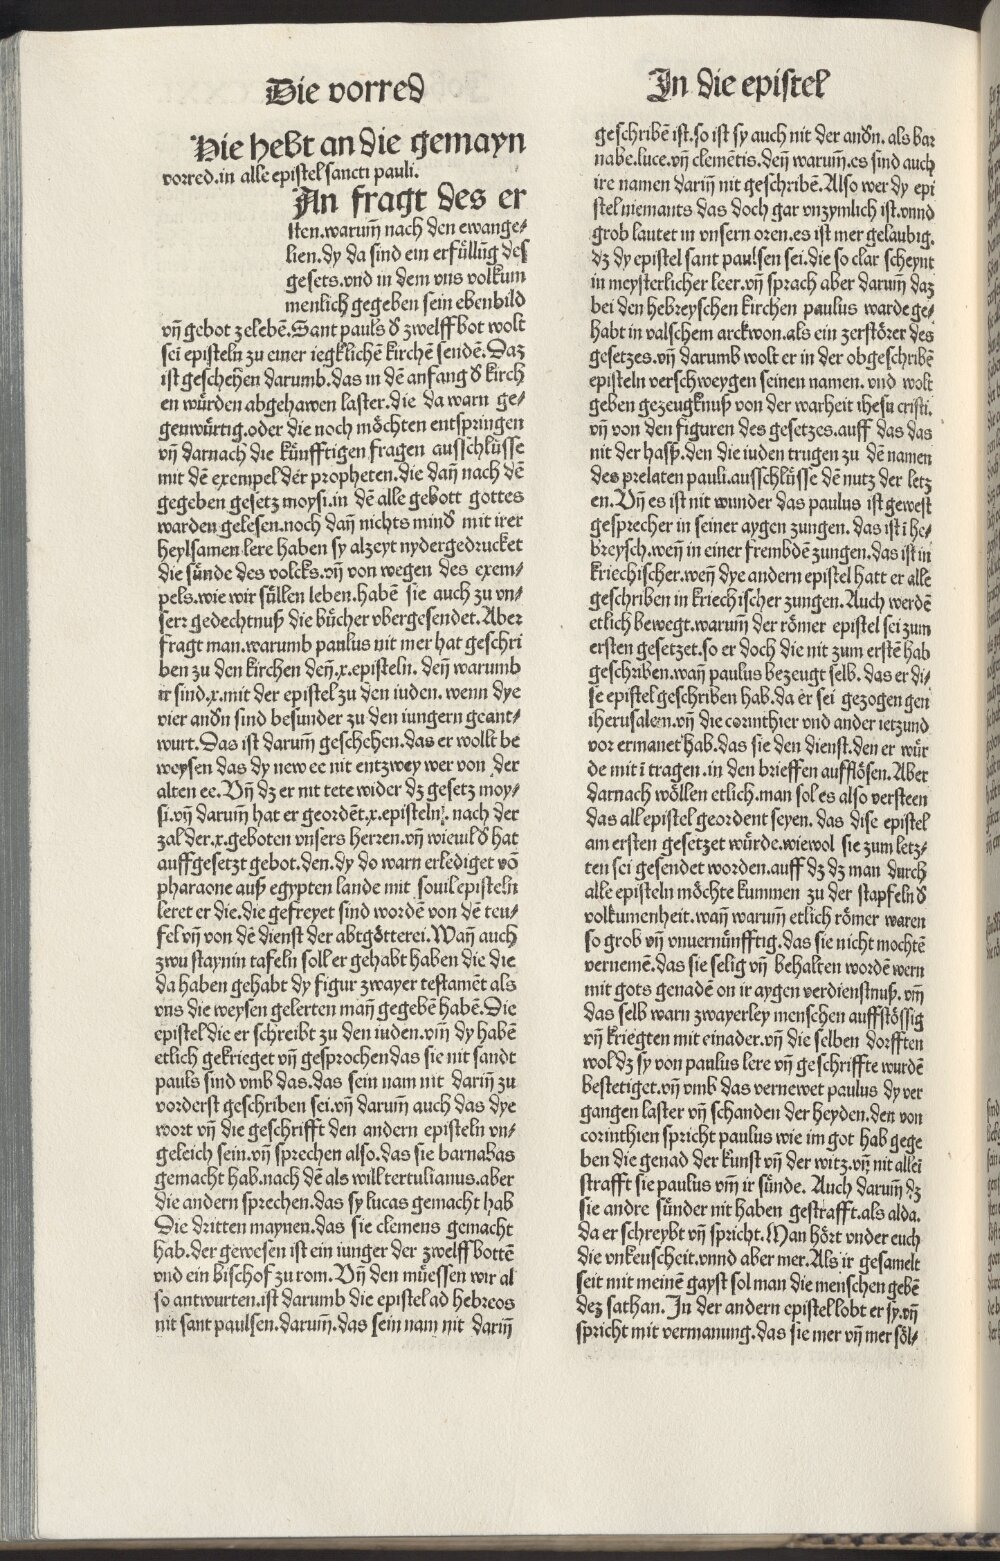 Die vorred
Hie hebt an die gemayn
vorred.in alle epistel sancti pauli.
An fragt des er
sten.warum̃ nach den ewange⸗
lien.dy da sind ein erfüllũg des
gesets.vnd in dem vns volkum
menlich gegeben sein ebenbild
vñ gebot zelebẽ.Sant pauls đ zwelffbot wolt
sei episteln zu einer iegklichẽ kirchẽ sendẽ.Daz
ist geschehen darumb.das in dẽ anfang đ kirch
en würden abgehawen laster.die da warn ge⸗
genwürtig.oder die noch möchten entspringen
vñ darnach die künfftigen fragen ausschlüsse
mit dẽ exempel der propheten.die dañ nach dẽ
gegeben gesetz moysi.in dẽ alle gebott gottes
warden gelesen.noch dañ nichts minđ mit irer
heylsamen lere haben sy alzeyt nydergedrucket
die sünde des volcks.vñ von wegen des exem⸗
pels.wie wir süllen leben.habẽ sie auch zu vn⸗
serr gedechtnuß die bücher vbergesendet.Aber
fragt man.warumb paulus nit mer hat geschri
ben zu den kirchen deñ.x.episteln. deñ warumb
ir sind.x.mit der epistel zu den iuden. wenn dye
vier anđn sind besunder zu den iungern geant⸗
wurt.Das ist darum̃ geschehen.das er wollt be
weysen das dy new ee nit entzwey wer von der
alten ee.Vñ dz er nit tete wider dz gesetz moy⸗
si.vñ darum̃ hat er geordẽt.x.episteln. nach der
zal der.x.geboten vnsers herren.vñ wieuil đ hat
auffgesetzt gebot.den.dy do warn erlediget võ
pharaone auß egypten lande mit souil episteln
leret er die.die gefreyet sind wordẽ von dẽ teu⸗
fel vñ von dẽ dienst der abtgötterei.Wañ auch
zwu staynin tafeln soll er gehabt haben die die
da haben gehabt dy figur zwayer testamẽt als
vns die weysen gelerten mañ gegebẽ habẽ.Die
epistel die er schreibt zu den iuden.vm̃ dy habẽ
etlich gekrieget vñ gesprochen das sie nit sandt
pauls sind vmb das.das sein nam nit dariñ zu
vorderst geschriben sei.vñ darum̃ auch das dye
wort vñ die geschrifft den andern episteln vn⸗
geleich sein.vñ sprechen also.das sie barnabas
gemacht hab.nach dẽ als will tertulianus.aber
die andern sprechen.das sy lucas gemacht hab
Die dritten maynen.das sie clemens gemacht
hab.der gewesen ist ein iunger der zwelffbottẽ
vnd ein bischof zu rom.Vñ den müessen wir al
so antwurten.ist darumb die epistel ad hebreos
nit sant paulsen.darum̃.das sein nam nit dariñ
In die epistel
geschribẽ ist.so ist sy auch nit der anđn. als bar
nabe.luce.vñ clemẽtis.deñ warum̃.es sind auch
ire namen dariñ nit geschribẽ.Also wer dy epi
stel niemants das doch gar vnzymlich ist.vnnd
grob lautet in vnsern oren.es ist mer gelaubig.
dz dy epistel sant paulsen sei.die so clar scheynt
in meysterlicher leer.vñ sprach aber darum̃ daz
bei den hebreyschen kirchen paulus warde ge⸗
habt in valschem arckwon.als ein zerstörer des
gesetzes.vñ darumb wolt er in der obgeschribẽ
episteln verschweygen seinen namen. vnd wolt
geben gezeugknuß von der warheit ihesu cristi.
vñ von den figuren des gesetzes.auff das das
nit der haß.den die iuden trugen zu dẽ namen
des prelaten pauli.ausschlüsse dẽ nutz der letz
en.Vñ es ist nit wunder das paulus ist gewest
gesprecher in seiner aygen zungen. das ist ĩ he⸗
breysch.weñ in einer frembdẽ zungen.das ist in
kriechischer.weñ dye andern epistel hatt er alle
geschriben in kriechischer zungen.Auch werdẽ
etlich bewegt.warum̃ der römer epistel sei zum
ersten gesetzet.so er doch die nit zum erstẽ hab
geschriben.wañ paulus bezeugt selb.das er di⸗
se epistel geschriben hab.da er sei gezogen gen
iherusalem.vñ die corinthier vnd ander ietzund
vor ermanet hab.das sie den dienst.den er wür
de mit ĩ tragen.in den brieffen aufflösen.Aber
darnach wöllen etlich.man sol es also versteen
das all epistel geordent seyen. das dise epistel
am ersten gesetzet würde.wiewol sie zum letz⸗
ten sei gesendet worden.auff dz dz man durch
alle episteln möchte kummen zu der stapfeln đ
volkumenheit.wañ warum̃ etlich römer waren
so grob vñ vnuernünfftig.das sie nicht mochtẽ
vernemẽ.das sie selig vñ behalten wordẽ wern
mit gots genadẽ on ir aygen verdienstnuß. vm̃
das selb warn zwayerley menschen auffstössig
vñ kriegten mit einader.vñ die selben dorfften
wol dz sy von paulus lere vñ geschriffte wurdẽ
bestetiget.vñ vmb das vernewet paulus dy ver
gangen laster vñ schanden der heyden.den von
corinthien spricht paulus wie im got hab gege
ben die genad der kunst vñ der witz.vñ nit alleĩ
strafft sie paulus vm̃ ir sünde. Auch darum̃ dz
sie andre sünder nit haben gestrafft.als alda.
da er schreybt vñ spricht.Man hört vnder euch
die vnkeuscheit.vnnd aber mer.Als ir gesamelt
seit mit meinẽ gayst sol man die menschen gebẽ
dez sathan. In der andern epistel lobt er sy.vñ
spricht mit vermanung.das sie mer vñ mer söl⸗